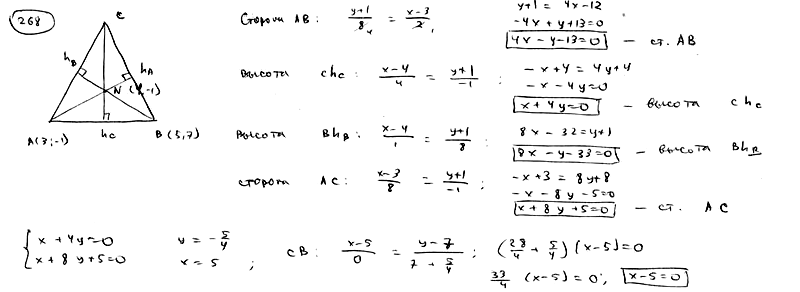 268
C
h_B
h_A
N (4,-1)
A(3;-1)
h_c
B (5,7)
Сторона AB: (y+1)/8 = (x-3)/2
4 1
y+1 = 4x-12
-4x + y+13=0
4x-y-13=0 — ст. AB
высота Ch_c: (x-4)/4 = (y+1)/-1 ;
-x+4 = 4y+4
-x-4y=0
x+4y=0 — высота Ch_c
высота Bh_B: (x-4)/1 = (y+1)/8 ;
8x-32=y+1
8x-y-33=0 — высота Bh_B
сторона AC: (x-3)/8 = (y+1)/-1 ;
-x+3 = 8y+8
-x-8y-5=0
x+8y+5=0 — ст. AC
{ x+4y=0
x+8y+5=0
y = -5/4
x = 5 ;
CB: (x-5)/0 = (y-7)/(7+5/4) ; (28/4 + 5/4)(x-5)=0
33/4 (x-5)=0; x-5=0